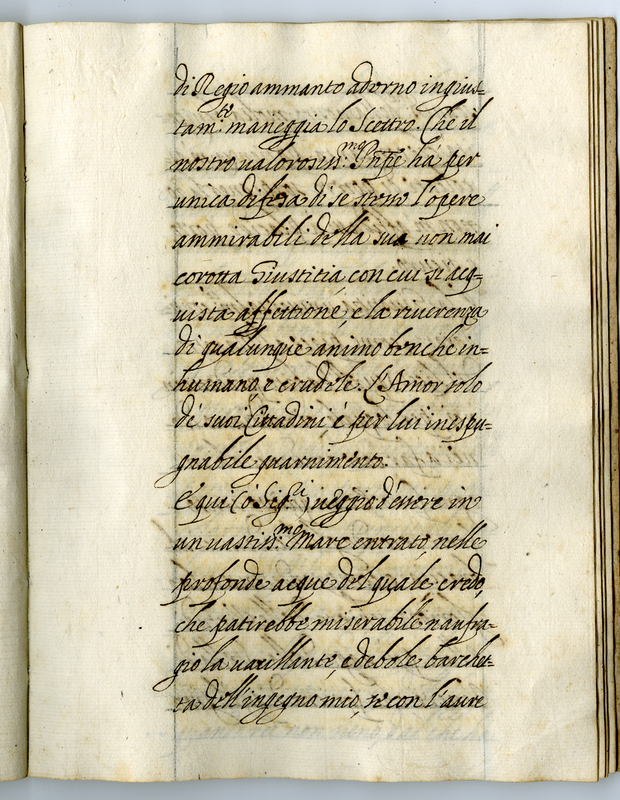 di Regio ammanto adorno ingius-
tam.te maneggia lo Scettro. Che il
nostro valorosiss.mo Pnpe hà per
unica difesa di se stesso l'opere
ammirabili della sua non mai
corotta Giustitia con cui si acq-
uista affettione, e la riverenza
di qualunque animo benche in=
humano, e crudele. L'Amor solo
de' suoi Cittadini è per lui inespu-
gnabile guarnimento.
E quì (ò Sig.ri) veggio d'essere in
un vastiss.mo Mare entrato, nelle
profonde acque del quale credo,
che patirebbe miserabile naufra-
gio la vacillante, e debole barchet-
ta dell'ingegno mio, se con l'aure